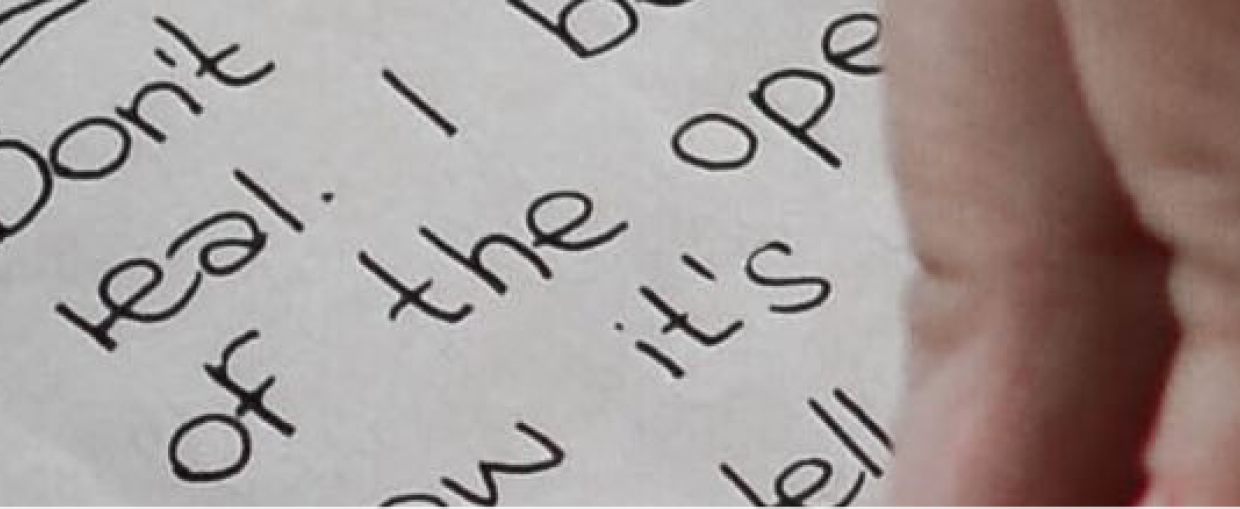 Don't
real. I
of the ope
w it's
ell